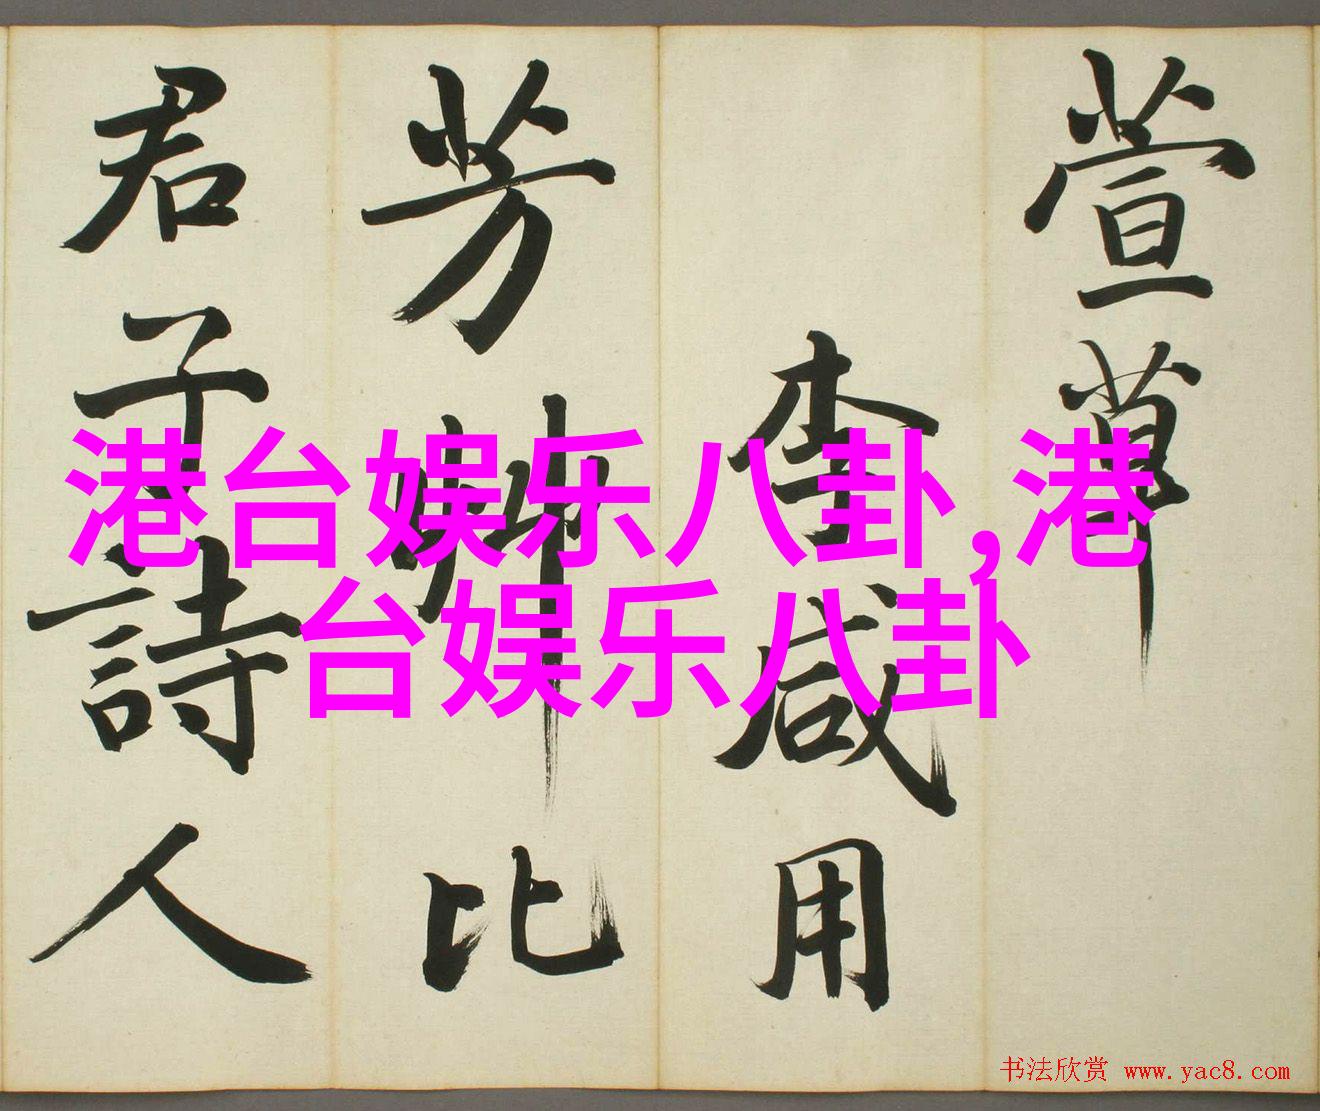 萱草
李咸用
芳艸比
君子詩人
港台娱乐八卦,港
台娱乐八卦
书法欣赏 www.yac8.com